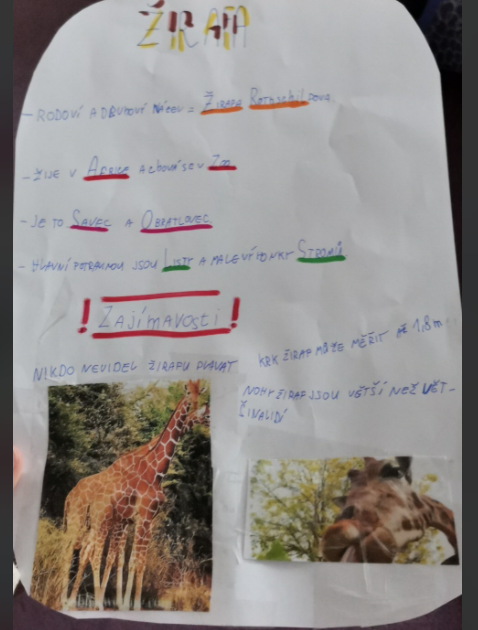 ŽIRAFA
- RODOVÍ A DRUHOVÝ NÁZEV = ŽIRAFA ROTHSCHILDOVA
- ŽIJE V AFRICE A CHOVÁ SE V ZOO
- JE TO SAVEC A OBRATLOVEC
- HLAVNÍ POTRAVNOU JSOU LISTY A MALÉ VÝHONKY STROMŮ
! ZAJÍMAVOSTI !
NIKDO NEVIDEL ŽIRAFU PLAVAT
KRK ŽIRAF MŮŽE MĚŘIT AŽ 1,8m
NOHY ŽIRAF JSOU VĚTŠÍ NEŽ VĚT-
ŠINA LIDÍ